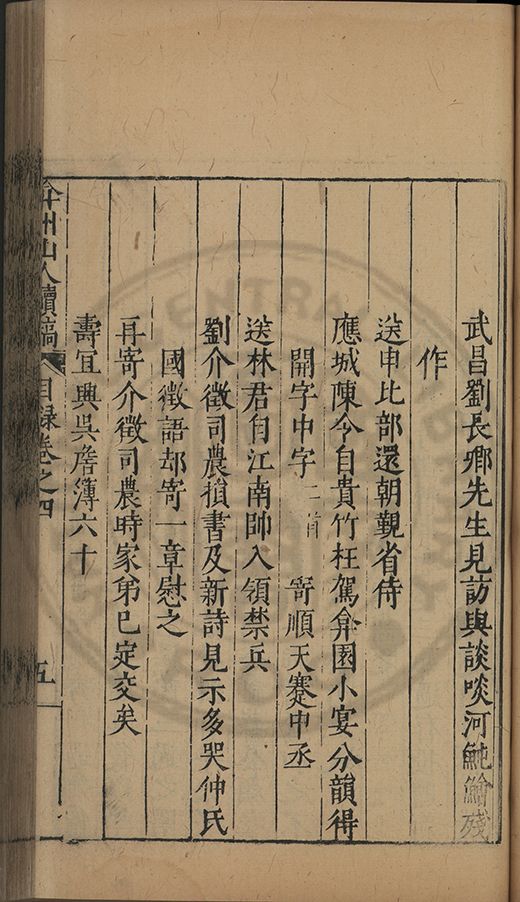 武昌劉長卿先生見訪與談啖河魨鱠殘
作
送申比部還朝覲省侍
應城陳令自貴竹枉駕弇園小宴分韻得
開字中字二首 寄順天蹇中丞
送林君自江南帥入領禁兵
劉介徵司農損書及新詩見示多哭仲氏
國徵語却寄一章慰之
再寄介徵司農時家弟已定交矣
壽宜興吳詹簿六十
弇州山人續稿 目録卷之四 五